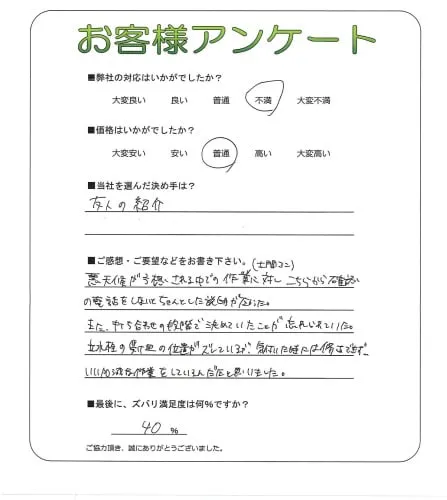 お客様アンケート
■弊社の対応はいかがでしたか？
大変良い 良い 普通 不満 大変不満
■価格はいかがでしたか？
大変安い 安い 普通 高い 大変高い
■当社を選んだ決め手は？
友人の紹介
■ご感想・ご要望などをお書き下さい。(土間コン)
悪天候が予想される中での作業に対し こちらから確認
の電話をしないとちゃんとした説明が
また、打ち合わせの段階で決めていたことが忘れられていた。
立水栓の 皿の位置がズレているが、気付いた時には修正できず、
いい加減な作業をしているんだなと思いました。
■最後に、ズバリ満足度は何%ですか？
40 %
ご協力頂き、誠にありがとうございました。